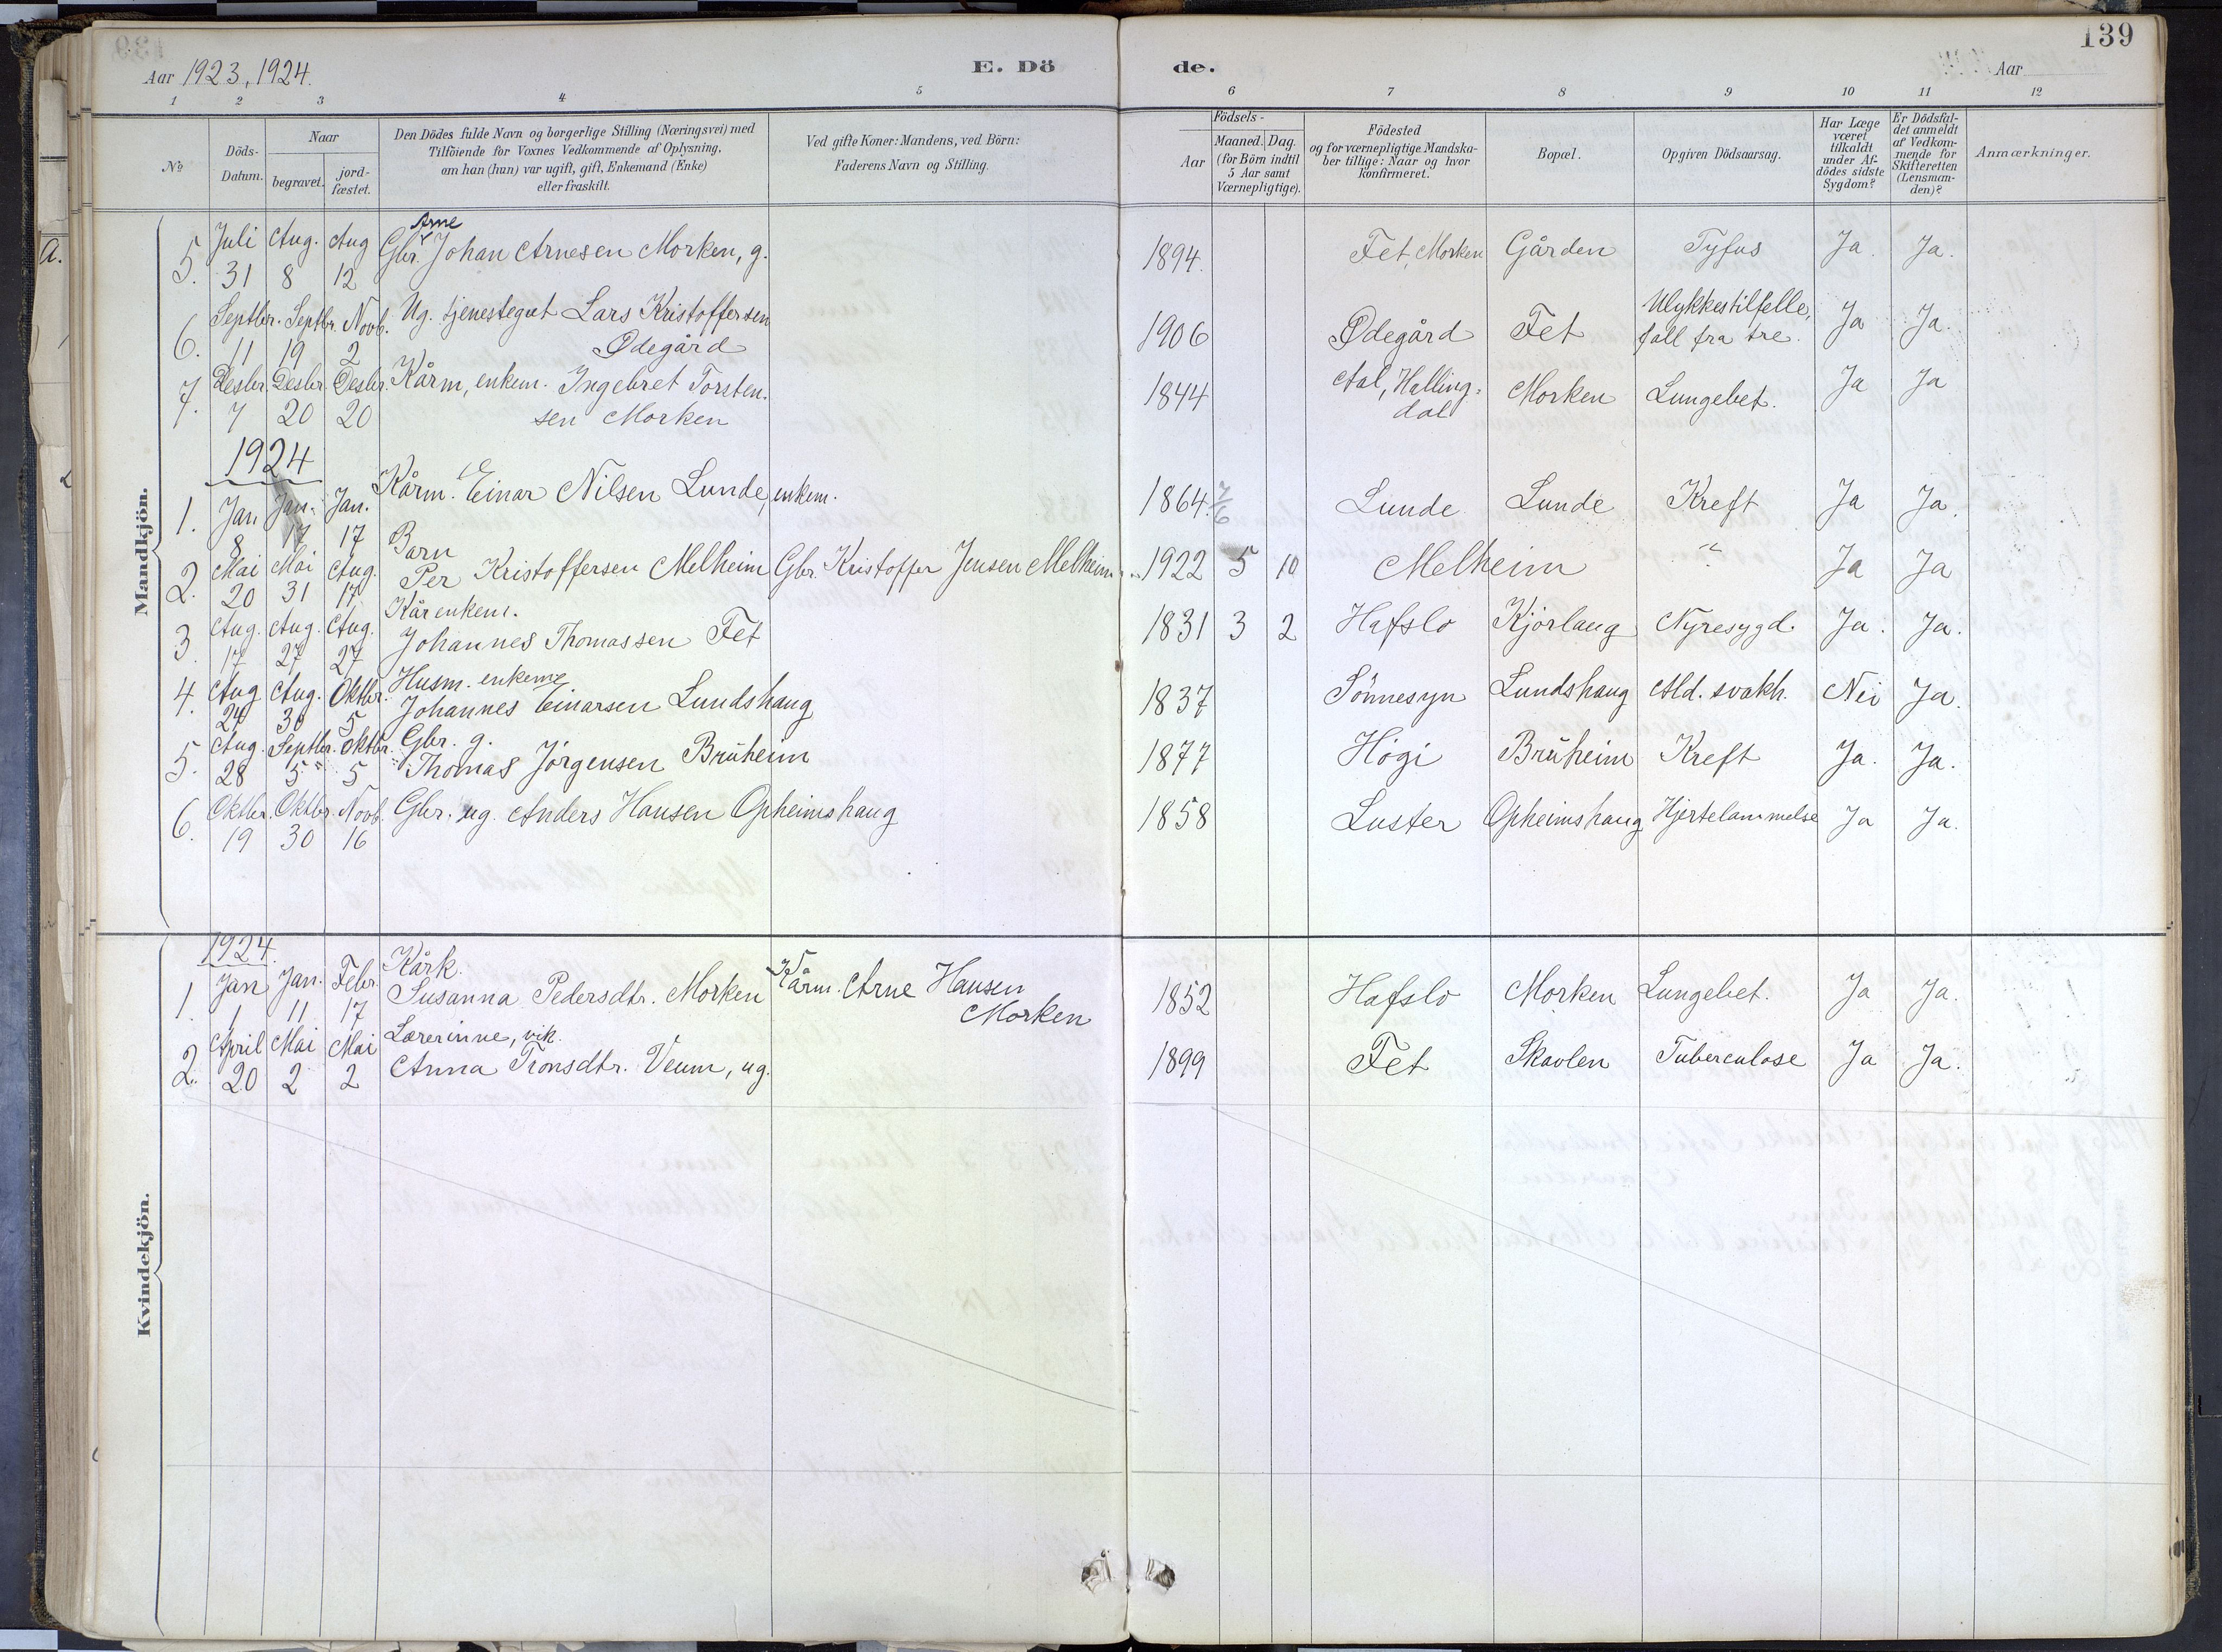 139
Aar 1923, 1924.
E. Dö de.
Aar
1 2 3 4 5 6 7 8 9 10 11 12
No
Döds-Datum.
Naar
begravet.
jord-fæstet.
Den Dödes fulde Navn og borgerlige Stilling (Næringsvei) med
Tilföiende for Voxnes Vedkommende af Oplysning,
om han (hun) var ugift, gift, Enkemand (Enke)
eller fraskilt.
Ved gifte Koner: Mandens, ved Börn:
Faderens Navn og Stilling.
Födsels-
Aar
Maaned. Dag.
(for Börn indtil
5 Aar samt
Værnepligtige).
Födested
og for værnepligtige Mandska-
ber tillige: Naar og hvor
konfirmeret.
Bopæl.
Opgiven Dödsaarsag.
Har Læge
været
tilkaldt
under Af-
dödes sidste
Sygdom?
Er Dödsfal-
det anmeldt
af Vedkom-
mende for
Skifteretten
(Lensman-
den)?
Anmærkninger.
Mandkjön.
Arne
5. Juli Aug. Aug Gbr. Johan Arnesen Morken, g. 1894. Fet, Morken Gården Tyfus Ja. Ja.
31 8 12
6. Septbr. Septbr. Novb. Ug. tjenestegut Lars Kristoffersen 1906 Ødegård Fet Ulykkestilfelle, Ja Ja.
11 19 2 Ødegård fall fra tre.
7. Desbr. Desbr. Desbr. Kårm, enkem. Ingebret Torsten- 1844 Aal, Halling- Morken Lungebet. Ja Ja
7 20 20 sen Morken dal
1924
1. Jan Jan. Jan. Kårm. Einar Nilsen Lunde, enkem. 1864. 7/6 Lunde Lunde Kreft Ja Ja.
8 17 17
Barn
2. Mai Mai Aug. Per Kristoffersen Melheim Gbr. Kristoffer Jensen Melheim 1922 5 10 Melheim " Ja Ja
20 31 17
Kårenkem.
3. Aug. Aug. Aug. Johannes Thomassen Fet 1831 3 2 Hafslo Kjörlaug Nyresygd. Ja. Ja.
17 27 27
Husm. enkem
4. Aug Aug. Oktbr. Johannes Einarsen Lundshaug 1837 Sönnesyn Lundshaug Ald. svakh. Nei Ja.
24 30 5
Gbr. g.
5. Aug. Septbr. Oktbr. Thomas Jörgensen Bruheim 1877 Högi Bruheim Kreft Ja. Ja.
28 5 5
6. Oktbr. Oktbr. Novb. Gbr. ug. Anders Hansen Opheimshaug 1858 Luster Opheimshaug Hjertelammelse Ja Ja.
19 30 16
Kvindekjön.
1924.
Kårk.
1. Jan Jan. Febr. Susanna Pedersdtr. Morken Kårm. Arne Hansen 1852 Hafslo Morken Lungebet. Ja Ja.
1 11 17 Morken
Lærerinne, vik.
2. April Mai Mai Anna Tronsdtr. Veum, ug. 1899 Fet Skavlen Tuberculose Ja Ja.
20 2 2